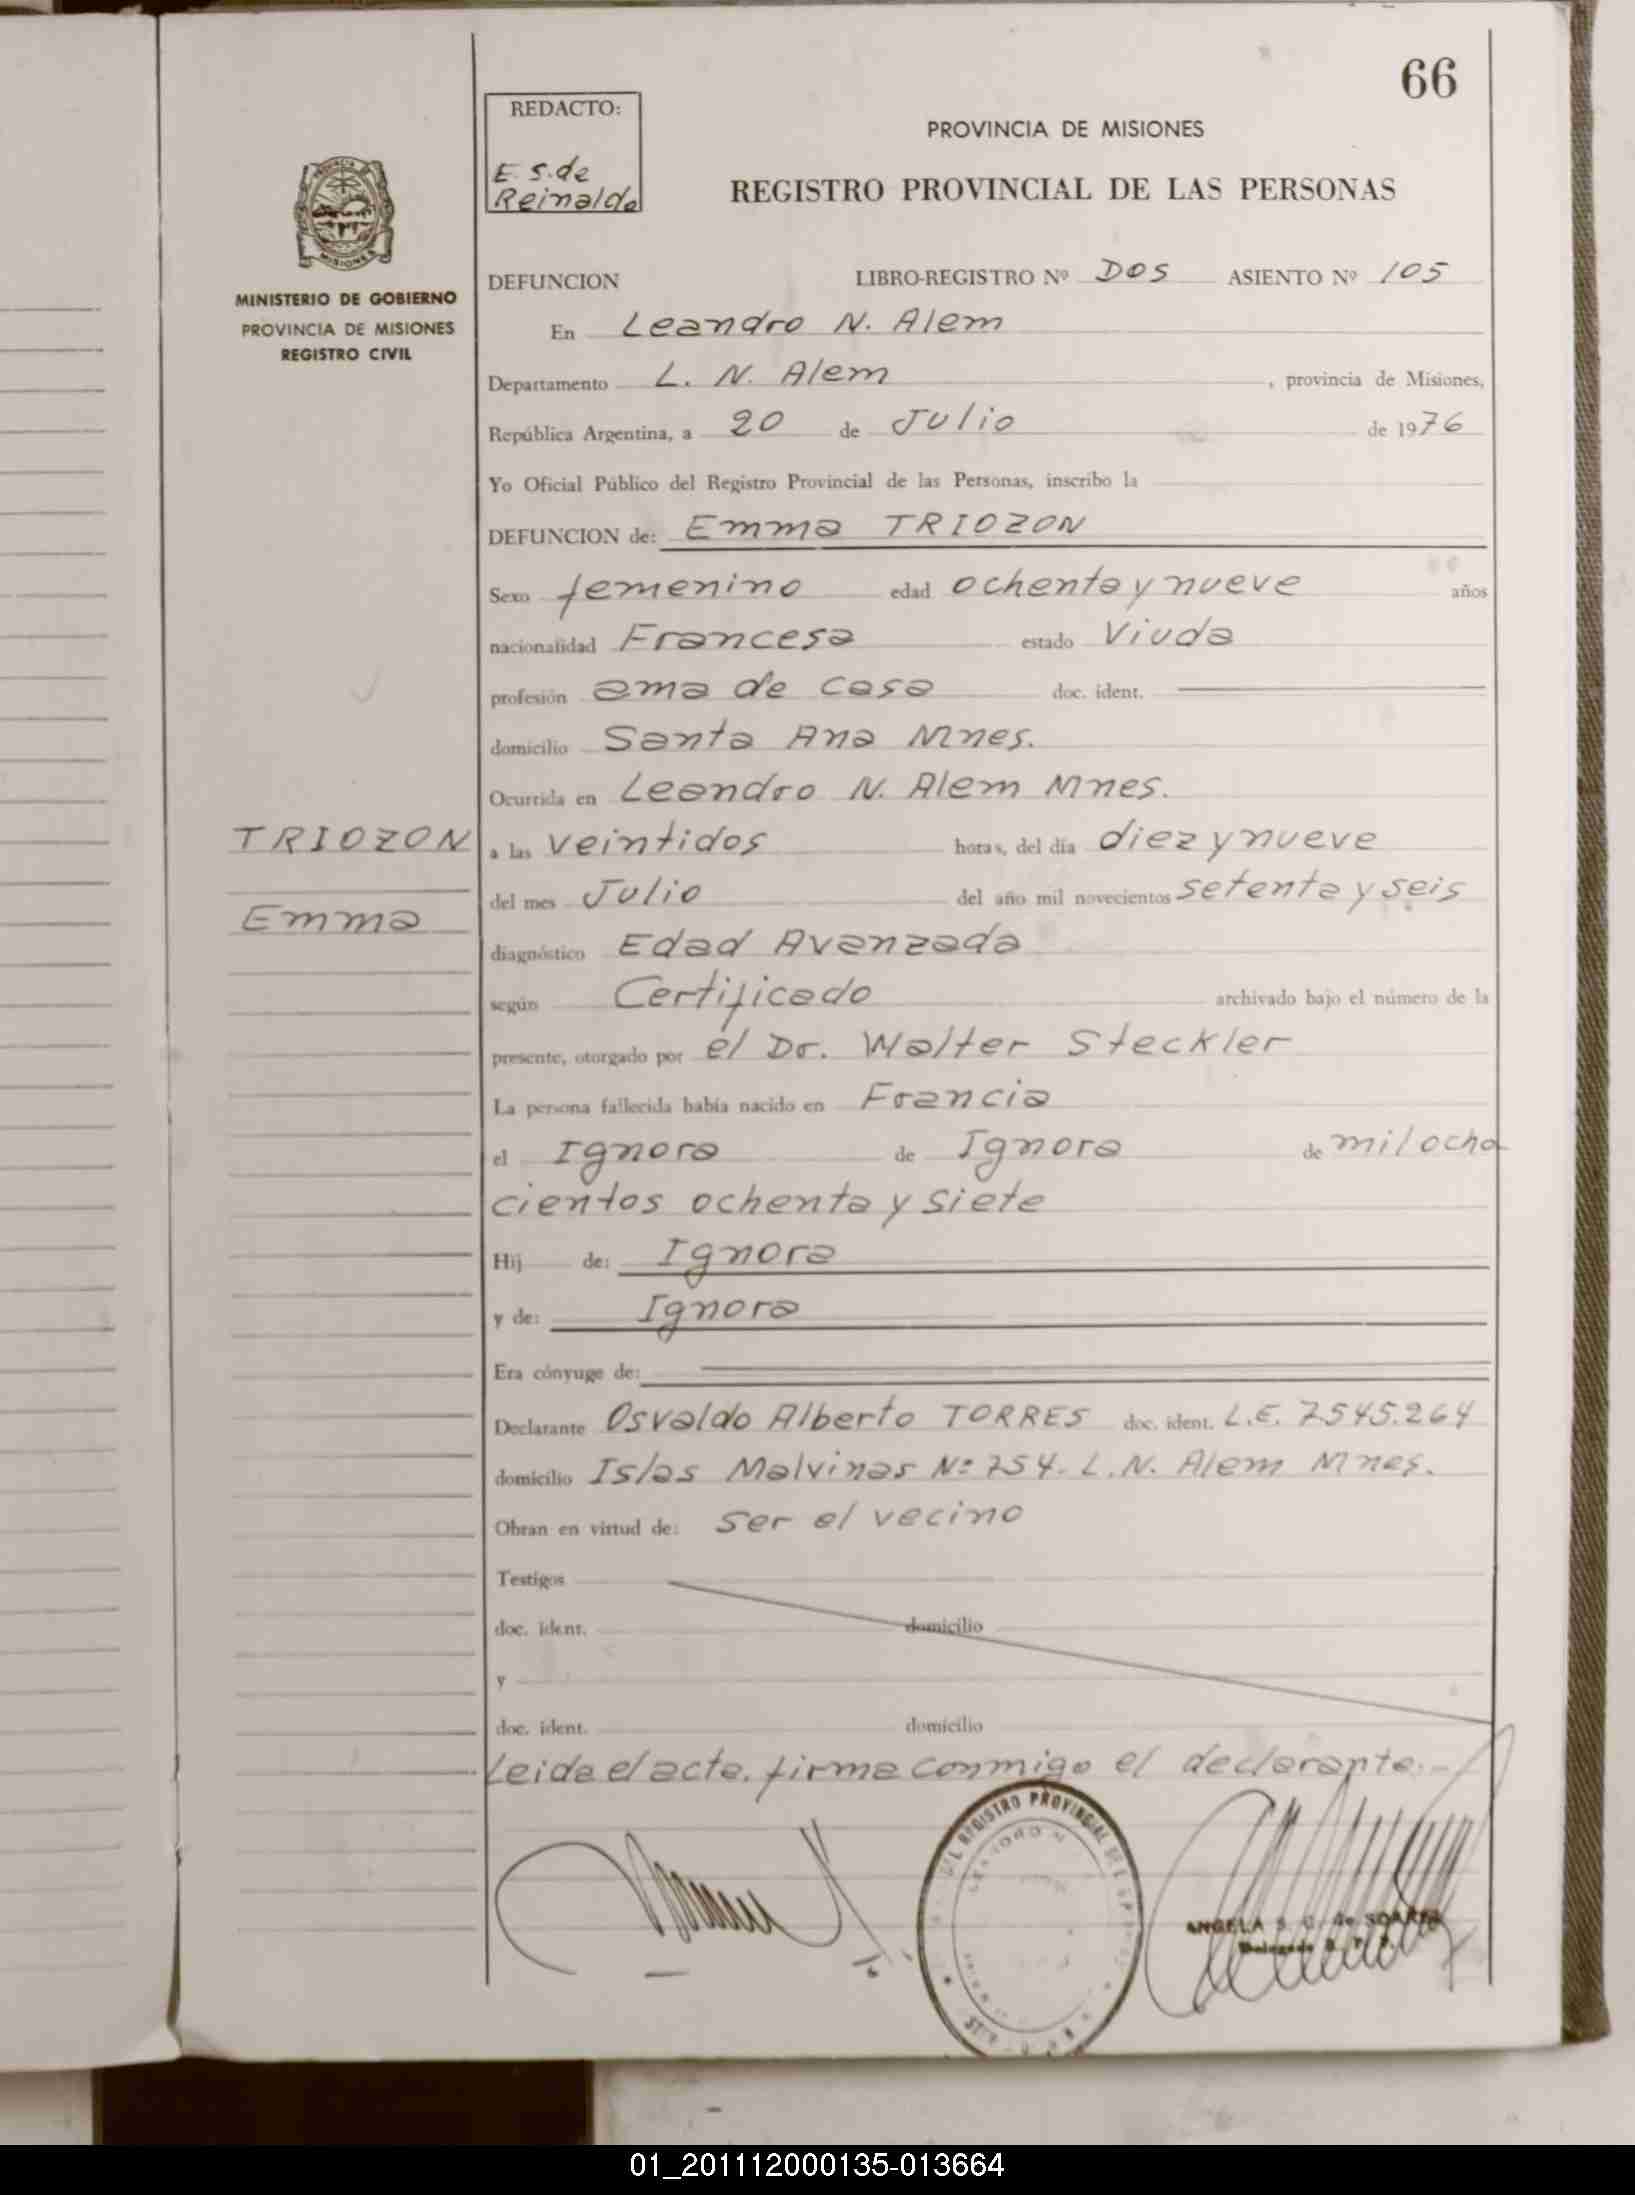 66
REDACTO:
E. S. de
Reinaldo
PROVINCIA DE MISIONES
REGISTRO PROVINCIAL DE LAS PERSONAS
MISIONES
MINISTERIO DE GOBIERNO
PROVINCIA DE MISIONES
REGISTRO CIVIL
DEFUNCION LIBRO-REGISTRO Nº DOS ASIENTO Nº 105
En Leandro N. Alem
Departamento L. N. Alem, provincia de Misiones,
República Argentina, a 20 de Julio de 1976
Yo Oficial Público del Registro Provincial de las Personas, inscribo la
DEFUNCION de: Emma TRIOZON
Sexo femenino edad ochenta y nueve años
nacionalidad Francesa estado Viuda
profesión ama de casa doc. ident.
domicilio Santa Ana Mnes.
Ocurrida en Leandro N. Alem Mnes.
TRIOZON
Emma
a las veintidos horas, del día diez y nueve
del mes Julio del año mil novecientos setenta y seis
diagnóstico Edad Avanzada
según Certificado archivado bajo el número de la
presente, otorgado por el Dr. Walter Steckler
La persona fallecida había nacido en Francia
el Ignora de Ignora de mil ocho
cientos ochenta y siete
Hij de: Ignora
y de: Ignora
Era cónyuge de:
Declarante Osvaldo Alberto TORRES doc. ident. L.E. 7.545.264
domicilio Islas Malvinas Nº 754. L.N. Alem Mnes.
Obran en virtud de: ser el vecino
Testigos
doc. ident. domicilio
y
doc. ident. domicilio
Leida el acta, firma conmigo el declarante.-
REGISTRO PROVINCIAL DE
ANGELA S. G. de
Delegada R. P. P.
01_201112000135-013664